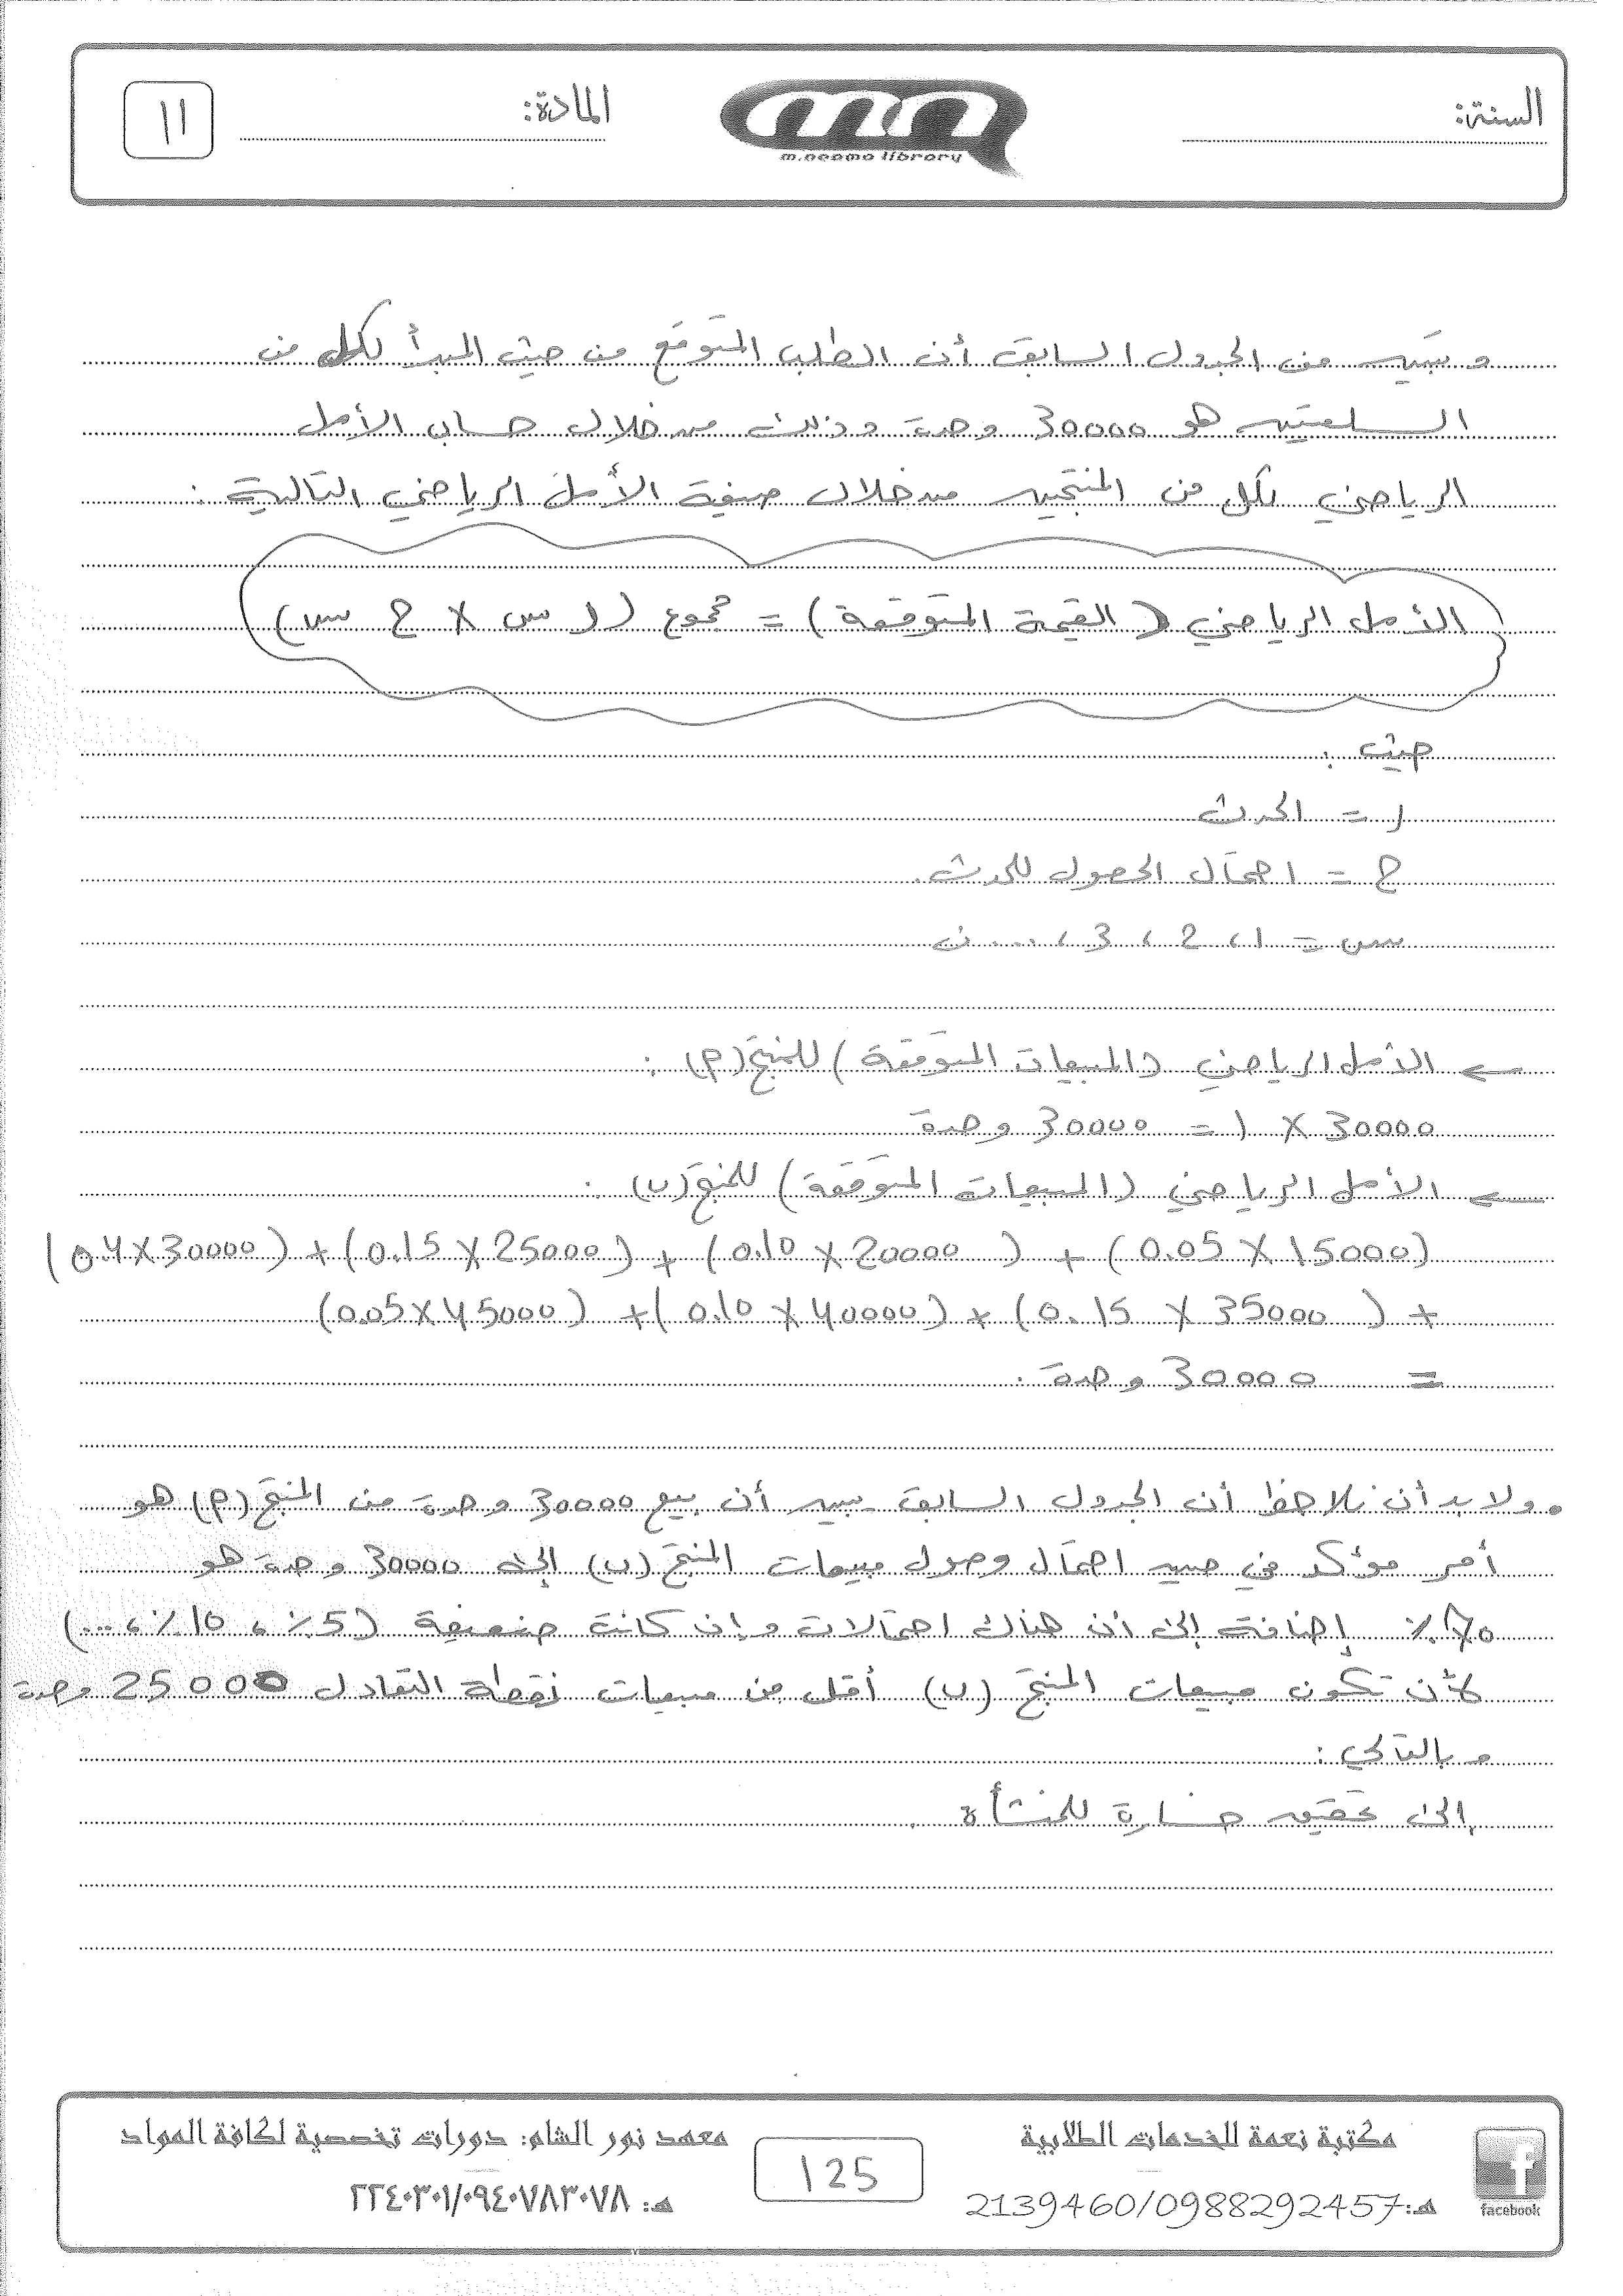 السنة:
m.neama library
المادة:
11
و يتبين من الجدول السابق أن الطلب المتوقع من حيث المبدأ لكل من
السلعتين هو 30000 وحدة وذلك من خلال حساب الأمل
الرياضي لكل من المنتجين من خلال صيغة الأمل الرياضي التالية :
الأمل الرياضي (القيمة المتوقعة) = مجموع (ر س × ح س)
حيث :
ر = الحدث
ح = احتمال الحصول للحدث.
س = 1 ، 2 ، 3 ، ... ن
← الأمل الرياضي (المبيعات المتوقعة) للمنتج (م) :
30000 × 1 = 30000 وحدة
← الأمل الرياضي (المبيعات المتوقعة) للمنتج (ن) :
(0.05 × 15000) + (0.10 × 20000) + (0.15 × 25000) + (0.4 × 30000)
+ (0.15 × 35000) + (0.10 × 40000) + (0.05 × 45000)
= 30000 وحدة .
. ولا بد أن نلاحظ أن الجدول السابق يبين أن بيع 30000 وحدة من المنتج (م) هو
أمر مؤكد في حين احتمال وصول مبيعات المنتج (ن) إلى 30000 وحدة هو
% إضافة إلى أن هناك احتمالات وإن كانت ضعيفة (5% ، 10% ، ...)
لأن تكون مبيعات المنتج (ن) أقل من مبيعات نقطة التعادل 25000 وحدة
و بالتالي :
إلى تحقيق خسارة للمنشأة .
مكتبة نعمة للخدمات الطلابية
هـ: 2139460/0988292457
facebook
125
معهد نور الشام: دورات تخصصية لكافة المواد
هـ: ٢٢٤٠٣٠١/٠٩٤٠٧٨٣٠٧٨